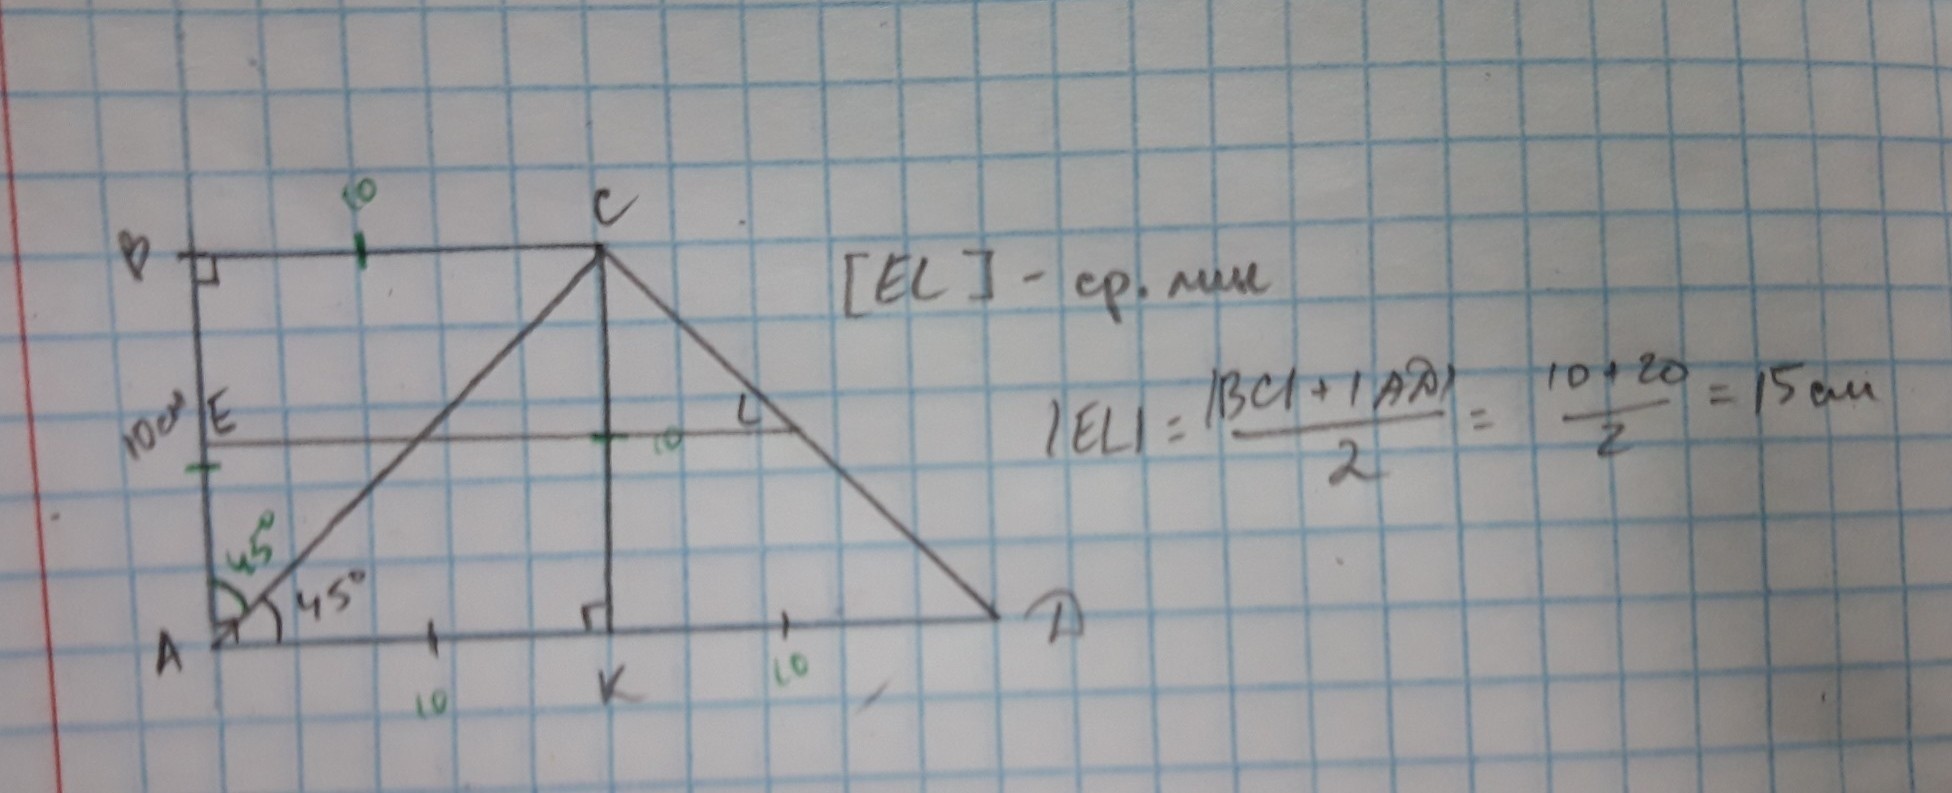 10
B
C
[EL] - ср. лин
|EL| = |BC| + |AD| / 2 = 10+20 / 2 = 15 см
10см
E
L
10
45°
45°
A
K
D
10
10